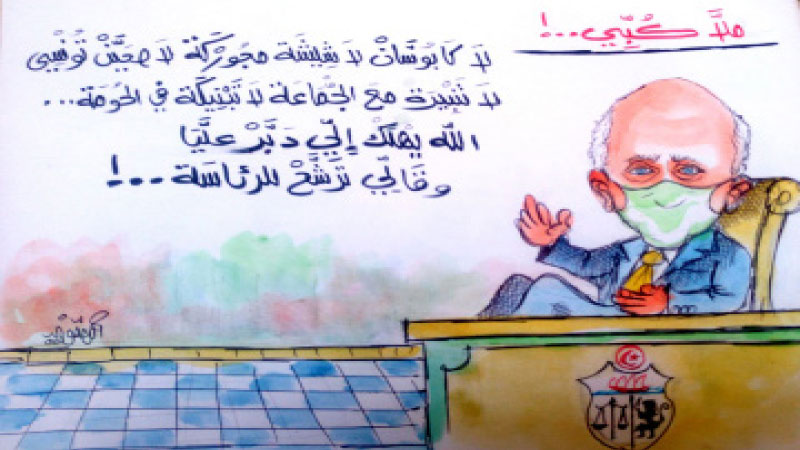 ملاَّ كُبِّي..!
لاَ كَابُوسَّانْ لاَ شِيشَة مجُورْكَة لاَ صحَيَّنْ تُونْسِي
لاَ تَنْبِيرَة مع الجْمَاعَة لاَ تَبْتِيكَة في الحُومَة...
الله يهْلكْ إلِّي دَبَّرْ عليَّا
وقَالِّي تْرَشَّحْ للرئاسَة ..!